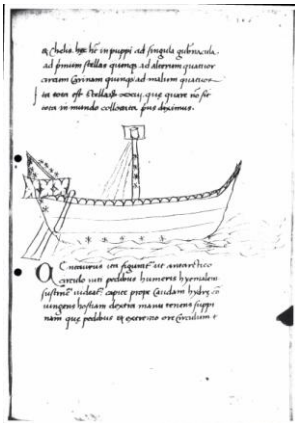 & Chelis. hec hẽ in puppi ad singula gubnacula.
ad pmum stellas quinq; ad alterum quattuor
circum Carinam quinq; ad malum quatuor
ita tota est stellaꝝ xxiij. que quare nõ sit
tota in mundo collocata pus diximus.
Centaurus ita figuratꝰ ut antartico
circulo niti pedibus humeris hyemalem
sustinẽ uideatꝰ capite prope Caudam hydre cõ
iungens hostiam dextera manu tenens suppi
nam que pedibus & extremo ore circulum t